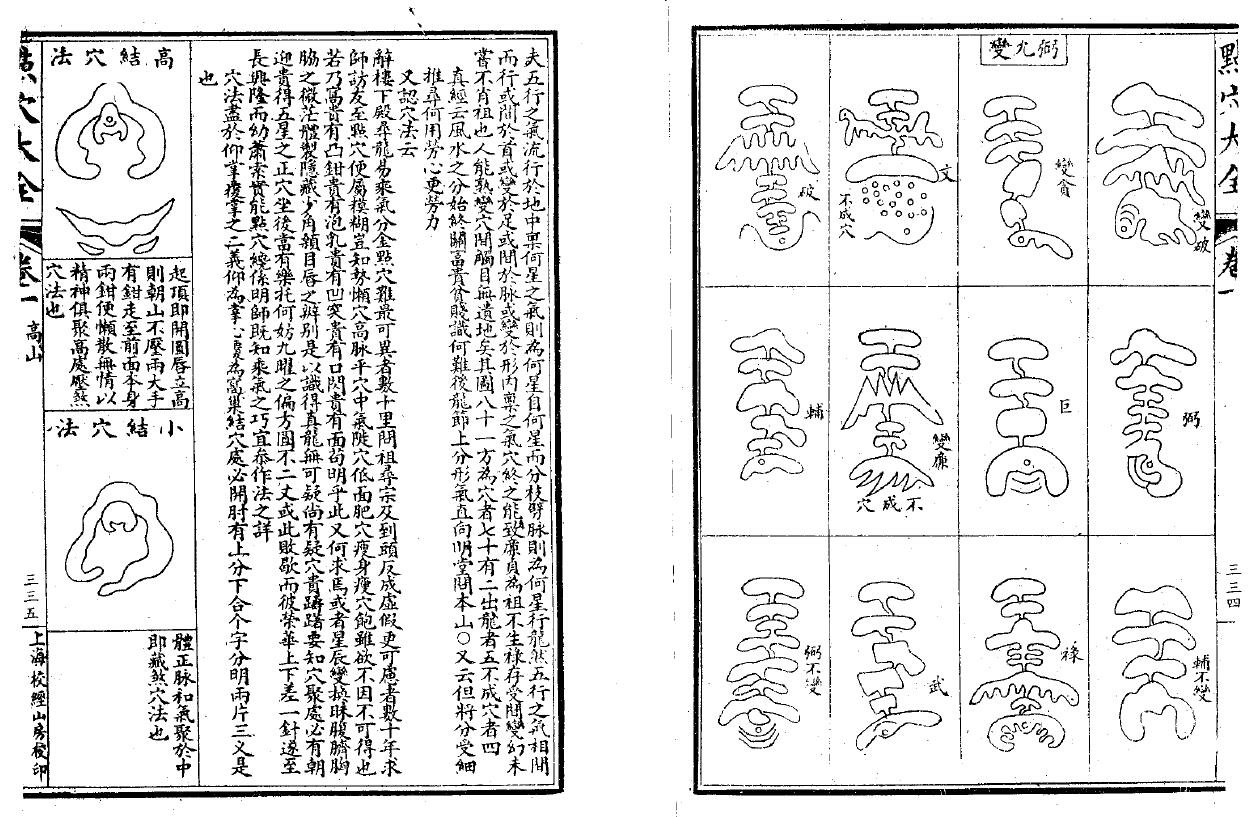 點穴大全
卷一
三三四
弼九變
變破
弼
輔不變
變貪
巨
祿
文
不成穴
變廉
不成穴
武
破
輔
弼不變
夫五行之氣流行於地中稟何星之氣則為何星自何星而分枝劈脉則為何星行龍然五行之氣相間
而行或間於首或變於足或間於脉或變於形內稟之氣穴終之能致廉貞為祖不生祿存受間變幻未
嘗不肖祖也人能熟變穴間觸目無遺地矣其圖八十一方為穴者七十有二出龍者五不成穴者四
真經云風水之分始終關富貴貧賤識何難後龍節上分形氣直向明堂間本山○又云但將分受細
推尋何用勞心更勞力
又認穴法云
辭樓下殿尋龍易乘氣分金點穴難最可異者數十里間祖尋宗及到頭反成虛假更可慮者數十年求
師訪友至點穴便屬模糊豈知勢懶穴高脉平穴中氣陡穴低面肥穴瘦身瘦穴飽雖欲不因不可得也
若乃窩貴有凸鉗貴有泡乳貴有凹突貴有口閃貴有面苟明乎此又何求焉或者星辰變換昧腹臍胸
脇之微茫體製隱藏少角額目唇之辨別是以識得真龍無可疑尚有疑穴貴躊躇要知穴聚處必有朝
迎貴得五星之正穴坐後當有樂托何妨九曜之偏方圓不二丈或此敗歇而彼榮華上下差一針遂至
長興隆而幼蕭索實能點穴纔係明師既知乘氣之巧宜叅作法之詳
穴法盡於仰掌覆掌之二義仰為掌心覆為窩集結穴處必開肘有上分下合个字分明兩片三义是
也
高結穴法
起頂即開圓唇立高
則朝山不壓兩大手
有鉗走至前面本身
兩鉗便懶散無情以
精神俱聚高處壓煞
穴法也
小結穴法
體正脉和氣聚於中
即藏煞穴法也
點穴大全
卷一
高山
三三五
上海校經山房校印